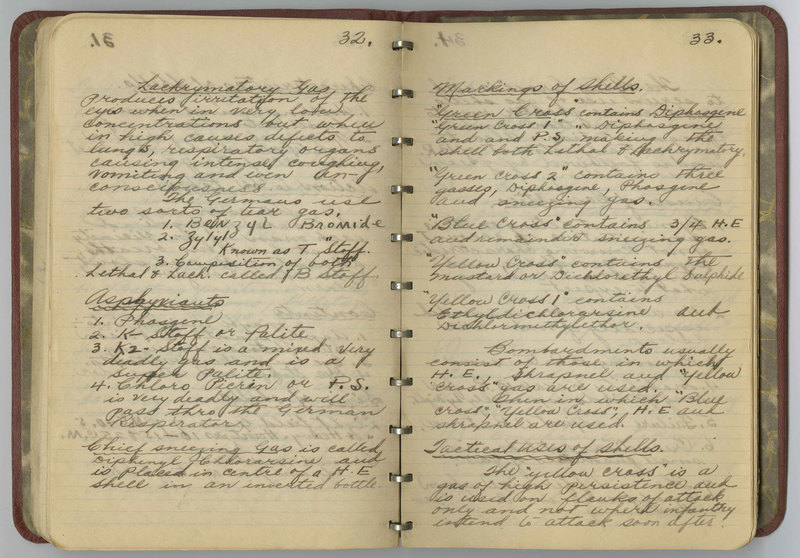 32.
Lachrymatory Gas,
Produces irritation of the
eyes when in very low
concentrations but when
in high causes defects to
lungs, respiratory organs
causing intense coughing,
vomiting and even un-
consciousness
The Germans use
two sorts of tear gas.
1. Benzyl Bromide
2. Zylyl
Known as T "Stoff.
3. Composition of both
Lethal & Lach. called B Stoff
Asphyxiants
1. Phosgene
2. K- Stoff or Palite
3. K2- Stoff is a mixed very
deadly gas and is a
super Palite.
4. Chloro Picrin or P.S.
is very deadly and will
pass thro the German
Respirator
Chief sneezing Gas is called
Diphenyl Chlorarsine and
is placed in centre of a H.E
shell in an inverted bottle.
33.
Markings of Shells.
"Green Cross" contains Diphosgene
"Green Cross 1" " Diphosgene
and and P.S. making the
shell both Lethal & Lachrymatory.
"Green Cross 2" contains three
gasses, Diphosgene, Phosgene
and sneezing gas.
"Blue Cross" contains 3/4 H.E
and remainder sneezing gas.
"Yellow Cross" contains the
mustard or Dichlorethyl Sulphide
"Yellow Cross 1" contains
Ethyldichlorarsine and
Dichlormethylether.
Bombardments usually
consist of those in which
H.E, Shrapnel and "Yellow
Cross" gas are used.
in which "Blue
Cross" "Yellow Cross", H.E and
shrapnel are used.
Tactical uses of shells.
The "Yellow Cross" is a
gas of high persistence and
is used on flanks of attack
only and not where infantry
intend to attack soon after